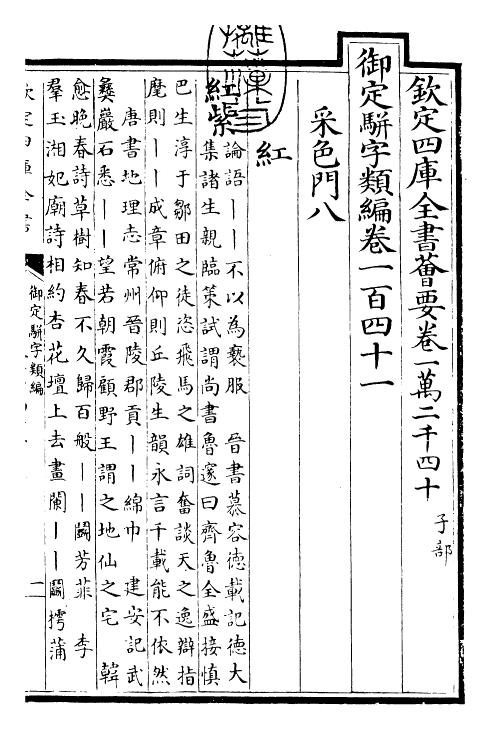 欽定四庫全書薈要卷一萬二千四十 子部
御定駢字類編卷一百四十一
采色門八
紅
紅紫 論語丨丨不以為褻服 晉書慕容德載記德大
集諸生親臨策試謂尚書魯邃曰齊魯全盛接慎
巴生淳于鄒田之徒恣飛馬之雄詞奮談天之逸辯指
麾則丨丨成章俯仰則丘陵生韻永言千載能不依然
唐書地理志常州晉陵郡貢丨丨綿巾 建安記武
彝巖石悉丨丨望若朝霞顧野王謂之地仙之宅 韓
愈晚春詩草樹知春不久歸百般丨丨鬭芳菲 李
羣玉湘妃廟詩相約杏花壇上去畫闌丨丨鬭摴蒲
御定駢字類編
一